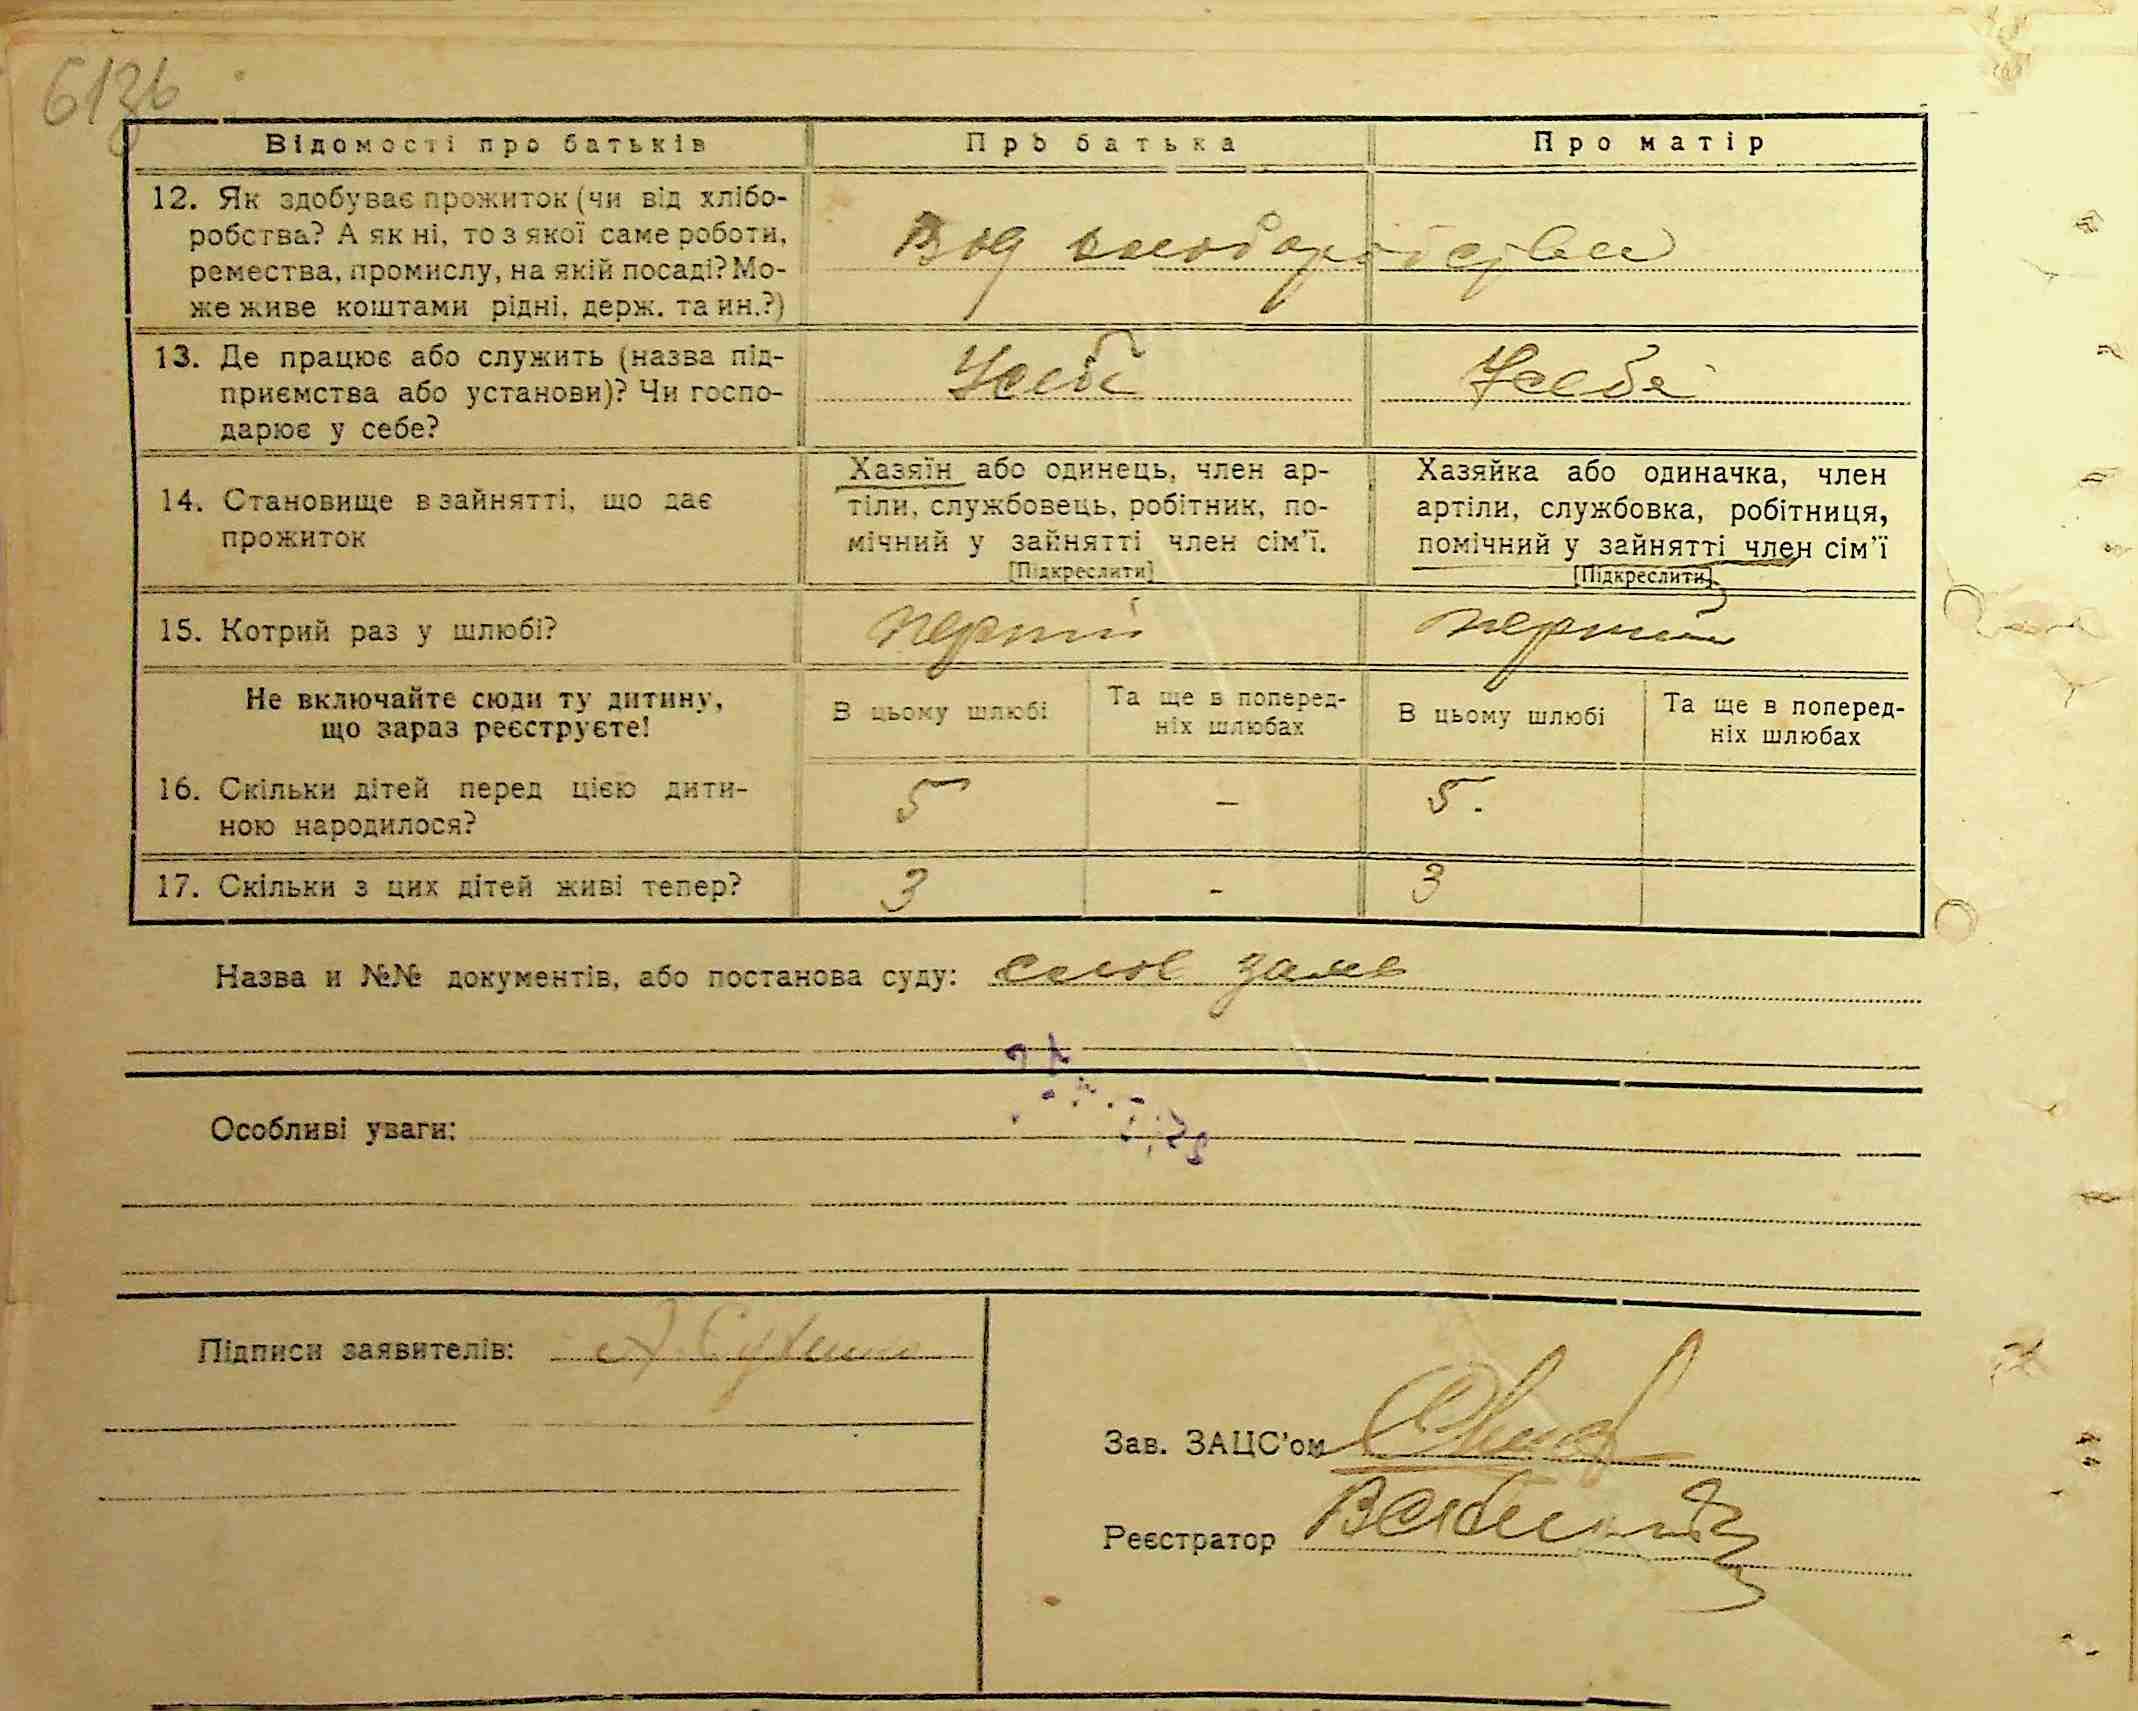 Відомості про батьків
Про батька
Про матір
12. Як здобуває прожиток (чи від хлібо-
робства? А як ні, то з якої саме роботи,
ремества, промислу, на якій посаді? Мо-
же живе коштами рідні, держ. та ин.?)
13. Де працює або служить (назва під-
приємства або установи)? Чи госпо-
дарює у себе?
Усебе
Усебе
14. Становище в зайнятті, що дає
прожиток
Хазяїн або одинець, член ар-
тіли, службовець, робітник, по-
мічний у зайнятті член сім'ї.
[Підкреслити]
Хазяйка або одиначка, член
артіли, службовка, робітниця,
помічний у зайнятті член сім'ї
[Підкреслити]
15. Котрий раз у шлюбі?
перший
перший
Не включайте сюди ту дитину,
що зараз реєструєте!
В цьому шлюбі
Та ще в поперед-
ніх шлюбах
В цьому шлюбі
Та ще в поперед-
ніх шлюбах
16. Скільки дітей перед цією дити-
ною народилося?
5
-
5.
17. Скільки з цих дітей живі тепер?
3
-
3
Назва и №№ документів, або постанова суду:
Особливі уваги:
Підписи заявителів:
Зав. ЗАЦС'ом
Реєстратор